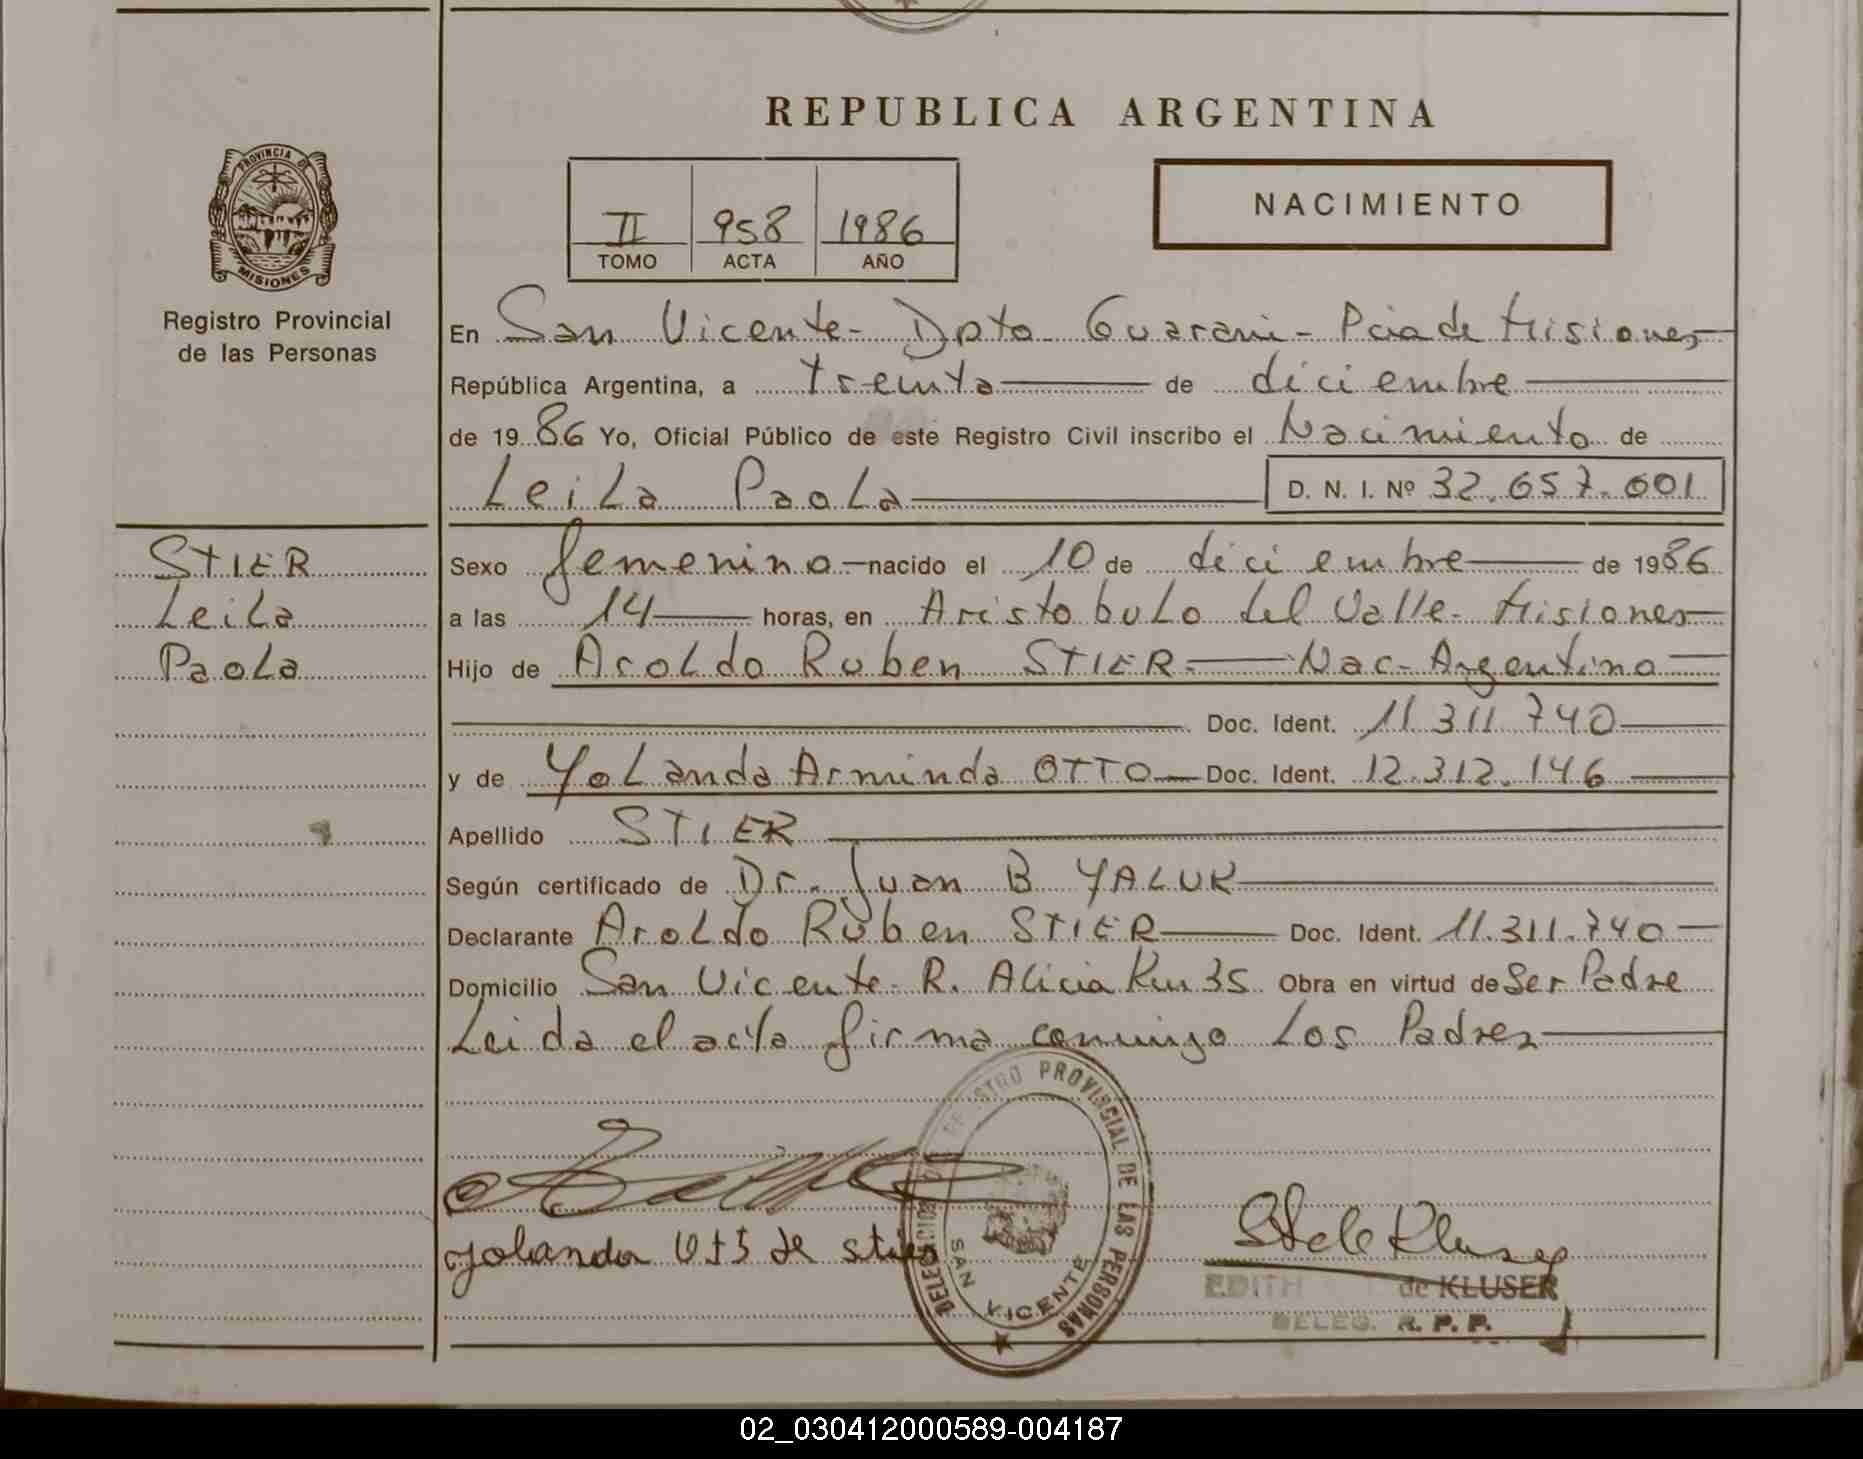 REPUBLICA ARGENTINA
PROVINCIA DE
MISIONES
Registro Provincial
de las Personas
II 958 1986
TOMO ACTA AÑO
NACIMIENTO
En San Vicente - Dpto Guarani - Pcia de Misiones
República Argentina, a treinta de diciembre
de 1986 Yo, Oficial Público de este Registro Civil inscribo el Nacimiento de
Leila Paola D. N. I. Nº 32.657.601
STIER
Leila
Paola
Sexo femenino nacido el 10 de diciembre de 1986
a las 14 horas, en Aristobulo del Valle - Misiones
Hijo de Aroldo Ruben STIER - Nac - Argentino
Doc. Ident. 11.311.740
y de Yolanda Arminda OTTO Doc. Ident. 12.312.146
Apellido STIER
Según certificado de Dr. Juan B YALUK
Declarante Aroldo Ruben STIER Doc. Ident. 11.311.740
Domicilio San Vicente - R. Alicia Km 35 Obra en virtud de Ser Padre
Leida el acta firma conmigo Los Padres
REGISTRO PROVINCIAL DE LAS PERSONAS
SAN VICENTE
Yolanda de stier
EDITH de KLUSER
DELEG. R. P. P.
02_030412000589-004187